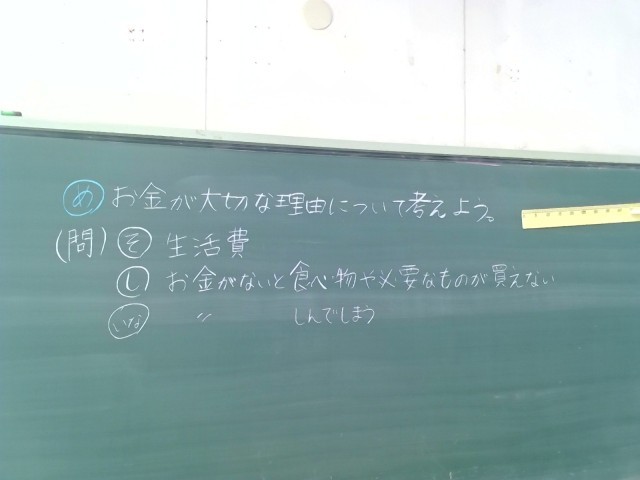 め お金が大切な理由について考えよう。
(問) そ 生活費
し お金がないと食べ物や必要なものが買えない
いな 〃 しんでしまう